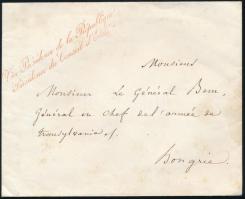 Vice Présidence de la République
Présidence du Conseil d'État
Monsieur
Monsieur Le Général Bem,
Général en Chef de l'armée de
Transylvanie /.
Bongrie.